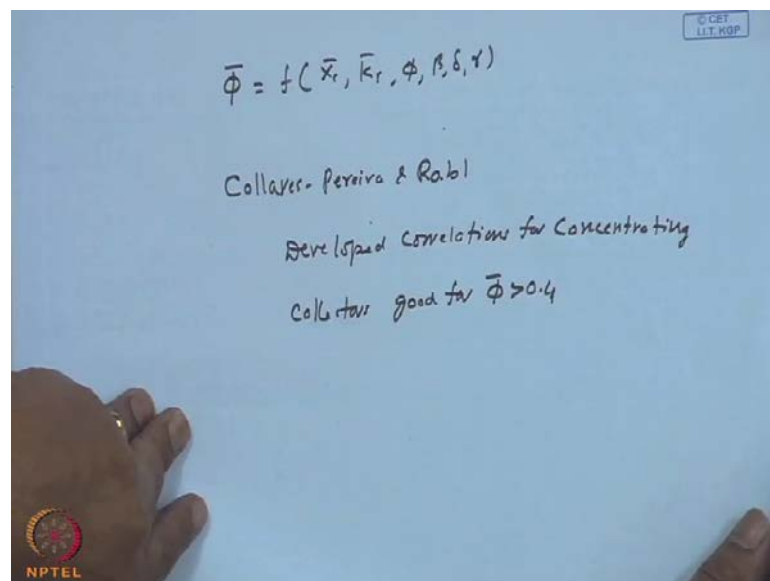 © CET
I.I.T. KGP
Φ̄ = f( X̄c, K̄T, Φ, β, δ, γ)
Collares-Pereira & Rabl
Developed Correlations for Concentrating
Collectors good for Φ̄ > 0.4
NPTEL